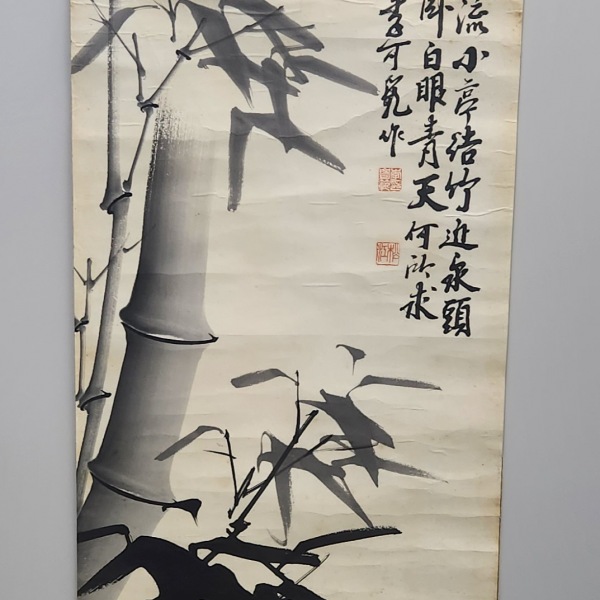 流小亭結竹近泉頭
卧白眼青天何所求
可作